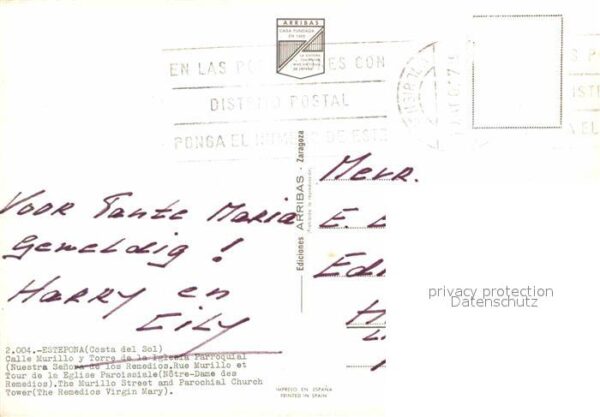 ARRIBAS
CASA FUNDADA
EN LAS CON
DISTRITO POSTAL
PONGA EL NUMERO DE ESTE
Mevr.
E.
Voor Tante Maria
Geweldig !
Harry en
Cily
Ediciones ARRIBAS - Zaragoza
privacy protection
Datenschutz
2.004.-ESTEPONA(Costa del Sol)
Calle Murillo y Torre de la Iglesia Parroquial
(Nuestra Señora de los Remedios.Rue Murillo et
Tour de la Eglise Paroissiale(Nôtre-Dame des
Remedios).The Murillo Street and Parochial Church
Tower(The Remedios Virgin Mary).
IMPRESO EN ESPAÑA
PRINTED IN SPAIN